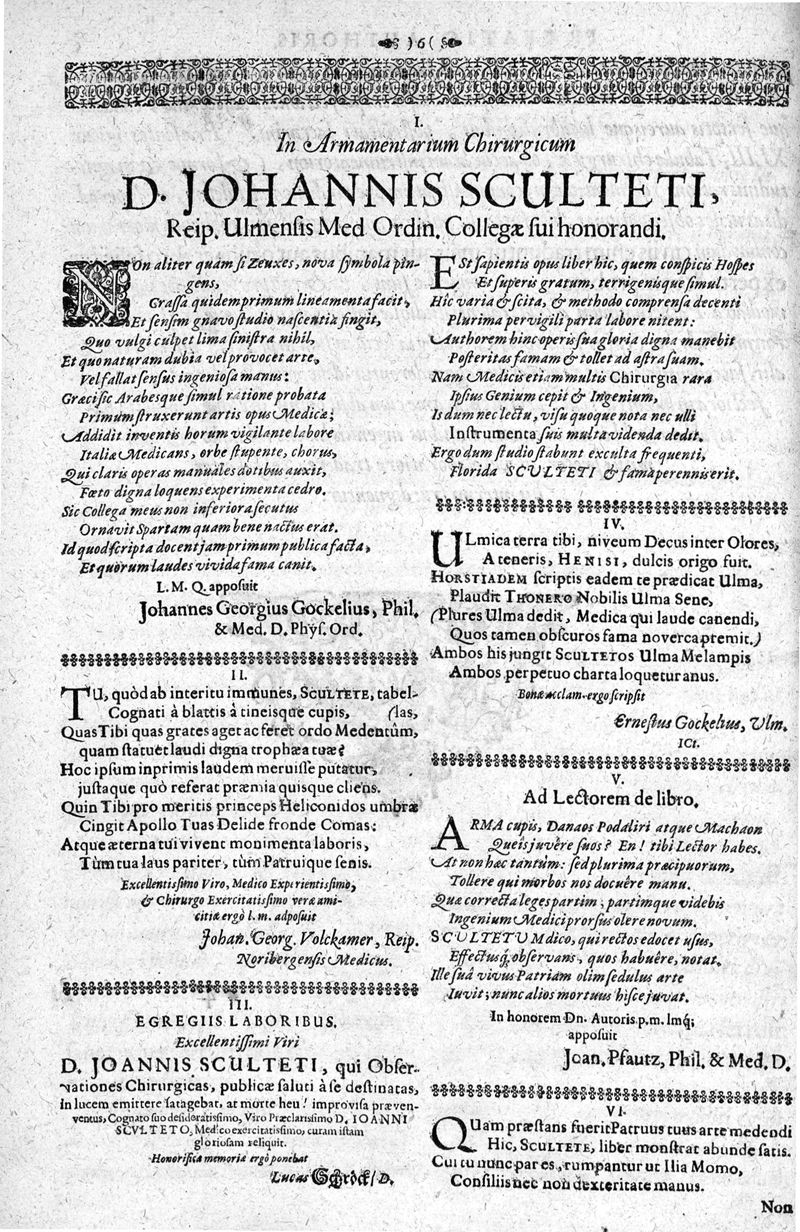 )6(
I.
In Armamentarium Chirurgicum
D. JOHANNIS SCULTETI,
Reip. Ulmensis Med Ordin. Collegæ sui honorandi.
NOn aliter quàm si Zeuxes, nova symbola pin-
gens,
Crassa quidem primum lineamenta facit,
Et sensim gnavo studio nascentia fingit,
Quo vulgi culpet lima sinistra nihil,
Et quo naturam dubia vel provocet arte,
Vel fallat sensus ingeniosa manus:
Græcisic Arabesque simul ratione probata
Primum struxerunt artis opus Medicæ;
Addidit inventis horum vigilante labore
Italiæ Medicans, orbe stupente, chorus,
Qui claris operas manuales dotibus auxit,
Fœto digna loquens experimenta cedro.
Sic Collega meus non inferiora secutus
Ornavit Spartam quam bene nactus erat.
Id quod scripta docent jam primum publica facta,
Et quorum laudes vivida fama canit.
L. M. Q. apposuit
Johannes Georgius Gockelius, Phil.
& Med. D. Phys. Ord.
II.
TU, quòd ab interitu immunes, SCULTETE, tabel-
Cognati à blattis à tineisque cupis, (las,
Quas Tibi quas grates aget ac feret ordo Medentûm,
quam statuet laudi digna trophæa tuæ?
Hoc ipsum inprimis laudem meruisse putatur,
justaque quò referat præmia quisque cliens.
Quin Tibi pro meritis princeps Heliconidos umbræ
Cingit Apollo Tuas Delide fronde Comas:
Atque æterna tui vivent monimenta laboris,
Tùm tua laus pariter, tùm Patruique senis.
Excellentissimo Viro, Medico Experientissimo,
& Chirurgo Exercitatissimo veræ ami-
citiæ ergò l. m. adposuit
Johan. Georg. Volckamer, Reip.
Noribergensis Medicus.
III.
EGREGIIS LABORIBUS.
Excellentissimi Viri
D. JOANNIS SCULTETI, qui Obser-
vationes Chirurgicas, publicæ saluti à se destinatas,
in lucem emittere satagebat, at morte heu! improvisa præven-
ventus, Cognato suo desideratissimo, Viro Præclarissimo D. IOANNI
SCVLTETO, Medico exercitatissimo, curam istam
gloriosam reliquit.
Honorificæ memoriæ ergò ponebat
Lucas Schröck/ D.
ESt sapientis opus liber hic, quem conspicis Hospes
Et superis gratum, terrigenisque simul.
Hic varia & scita, & methodo comprensa decenti
Plurima pervigili parta labore nitent:
Authorem hinc operis sua gloria digna manebit
Posteritas famam & tollet ad astra suam.
Nam Medicis etiam multis Chirurgia rara
Ipsius Genium cepit & Ingenium,
Is dum nec lectu, visu quoque nota nec ulli
Instrumenta suis multa videnda dedit.
Ergo dum studio stabunt exculta frequenti,
Florida SCULTETI & fama perennis erit.
IV.
ULmica terra tibi, niveum Decus inter Olores,
A teneris, HENISI, dulcis origo fuit.
HORSTIADEM scriptis eadem te prædicat Ulma,
Plaudit THONERO Nobilis Ulma Sene,
(Plures Ulma dedit, Medica qui laude canendi,
Quos tamen obscuros fama noverca premit.)
Ambos his jungit SCULTETOS Ulma Melampis
Ambos perpetuo charta loquetur anus.
Bonæ acclam. ergo scripsit
Ernestus Gockelius, Ulm.
ICt.
V.
Ad Lectorem de libro.
ARMA cupis, Danaos Podaliri atque Machaon
Queîs juvêre suos? En! tibi Lector habes.
At non hæc tantùm: sed plurima præcipuorum,
Tollere qui morbos nos docuêre manu.
Quæ correcta leges partim; partimque videbis
Ingenium Medici prorsus olere novum.
SCULTETU Mdico, qui rectos edocet usus,
Effectusq; observans, quos habuêre, notat.
Ille suâ vivus Patriam olim sedulus arte
Iuvit; nunc alios mortuus hisce juvat.
In honorem Dn. Autoris p. m. lmq;
apposuit
Joan. Pfautz, Phil. & Med. D.
VI.
QUam præstans fuerit Patruus tuus arte medendi
Hic, SCULTETE, liber monstrat abunde satis.
Cui tu nunc par es, rumpantur ut Ilia Momo,
Consiliis nec non dexteritate manus.
Non